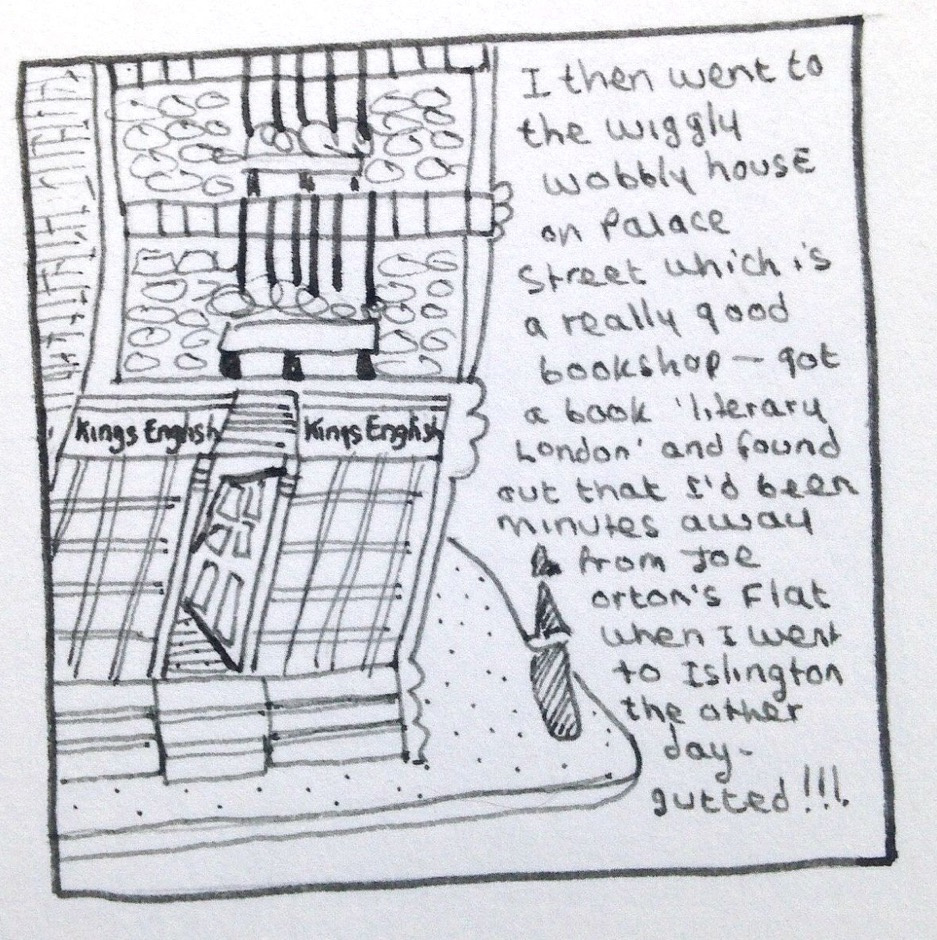 I then went to
the wiggly
wobbly house
on Palace
Street which is
a really good
bookshop - got
a book 'literary
London' and found
out that I'd been
minutes away
from Joe
orton's Flat
when I went
to Islington
the other
day-
gutted!!!.
Kings English
Kings English